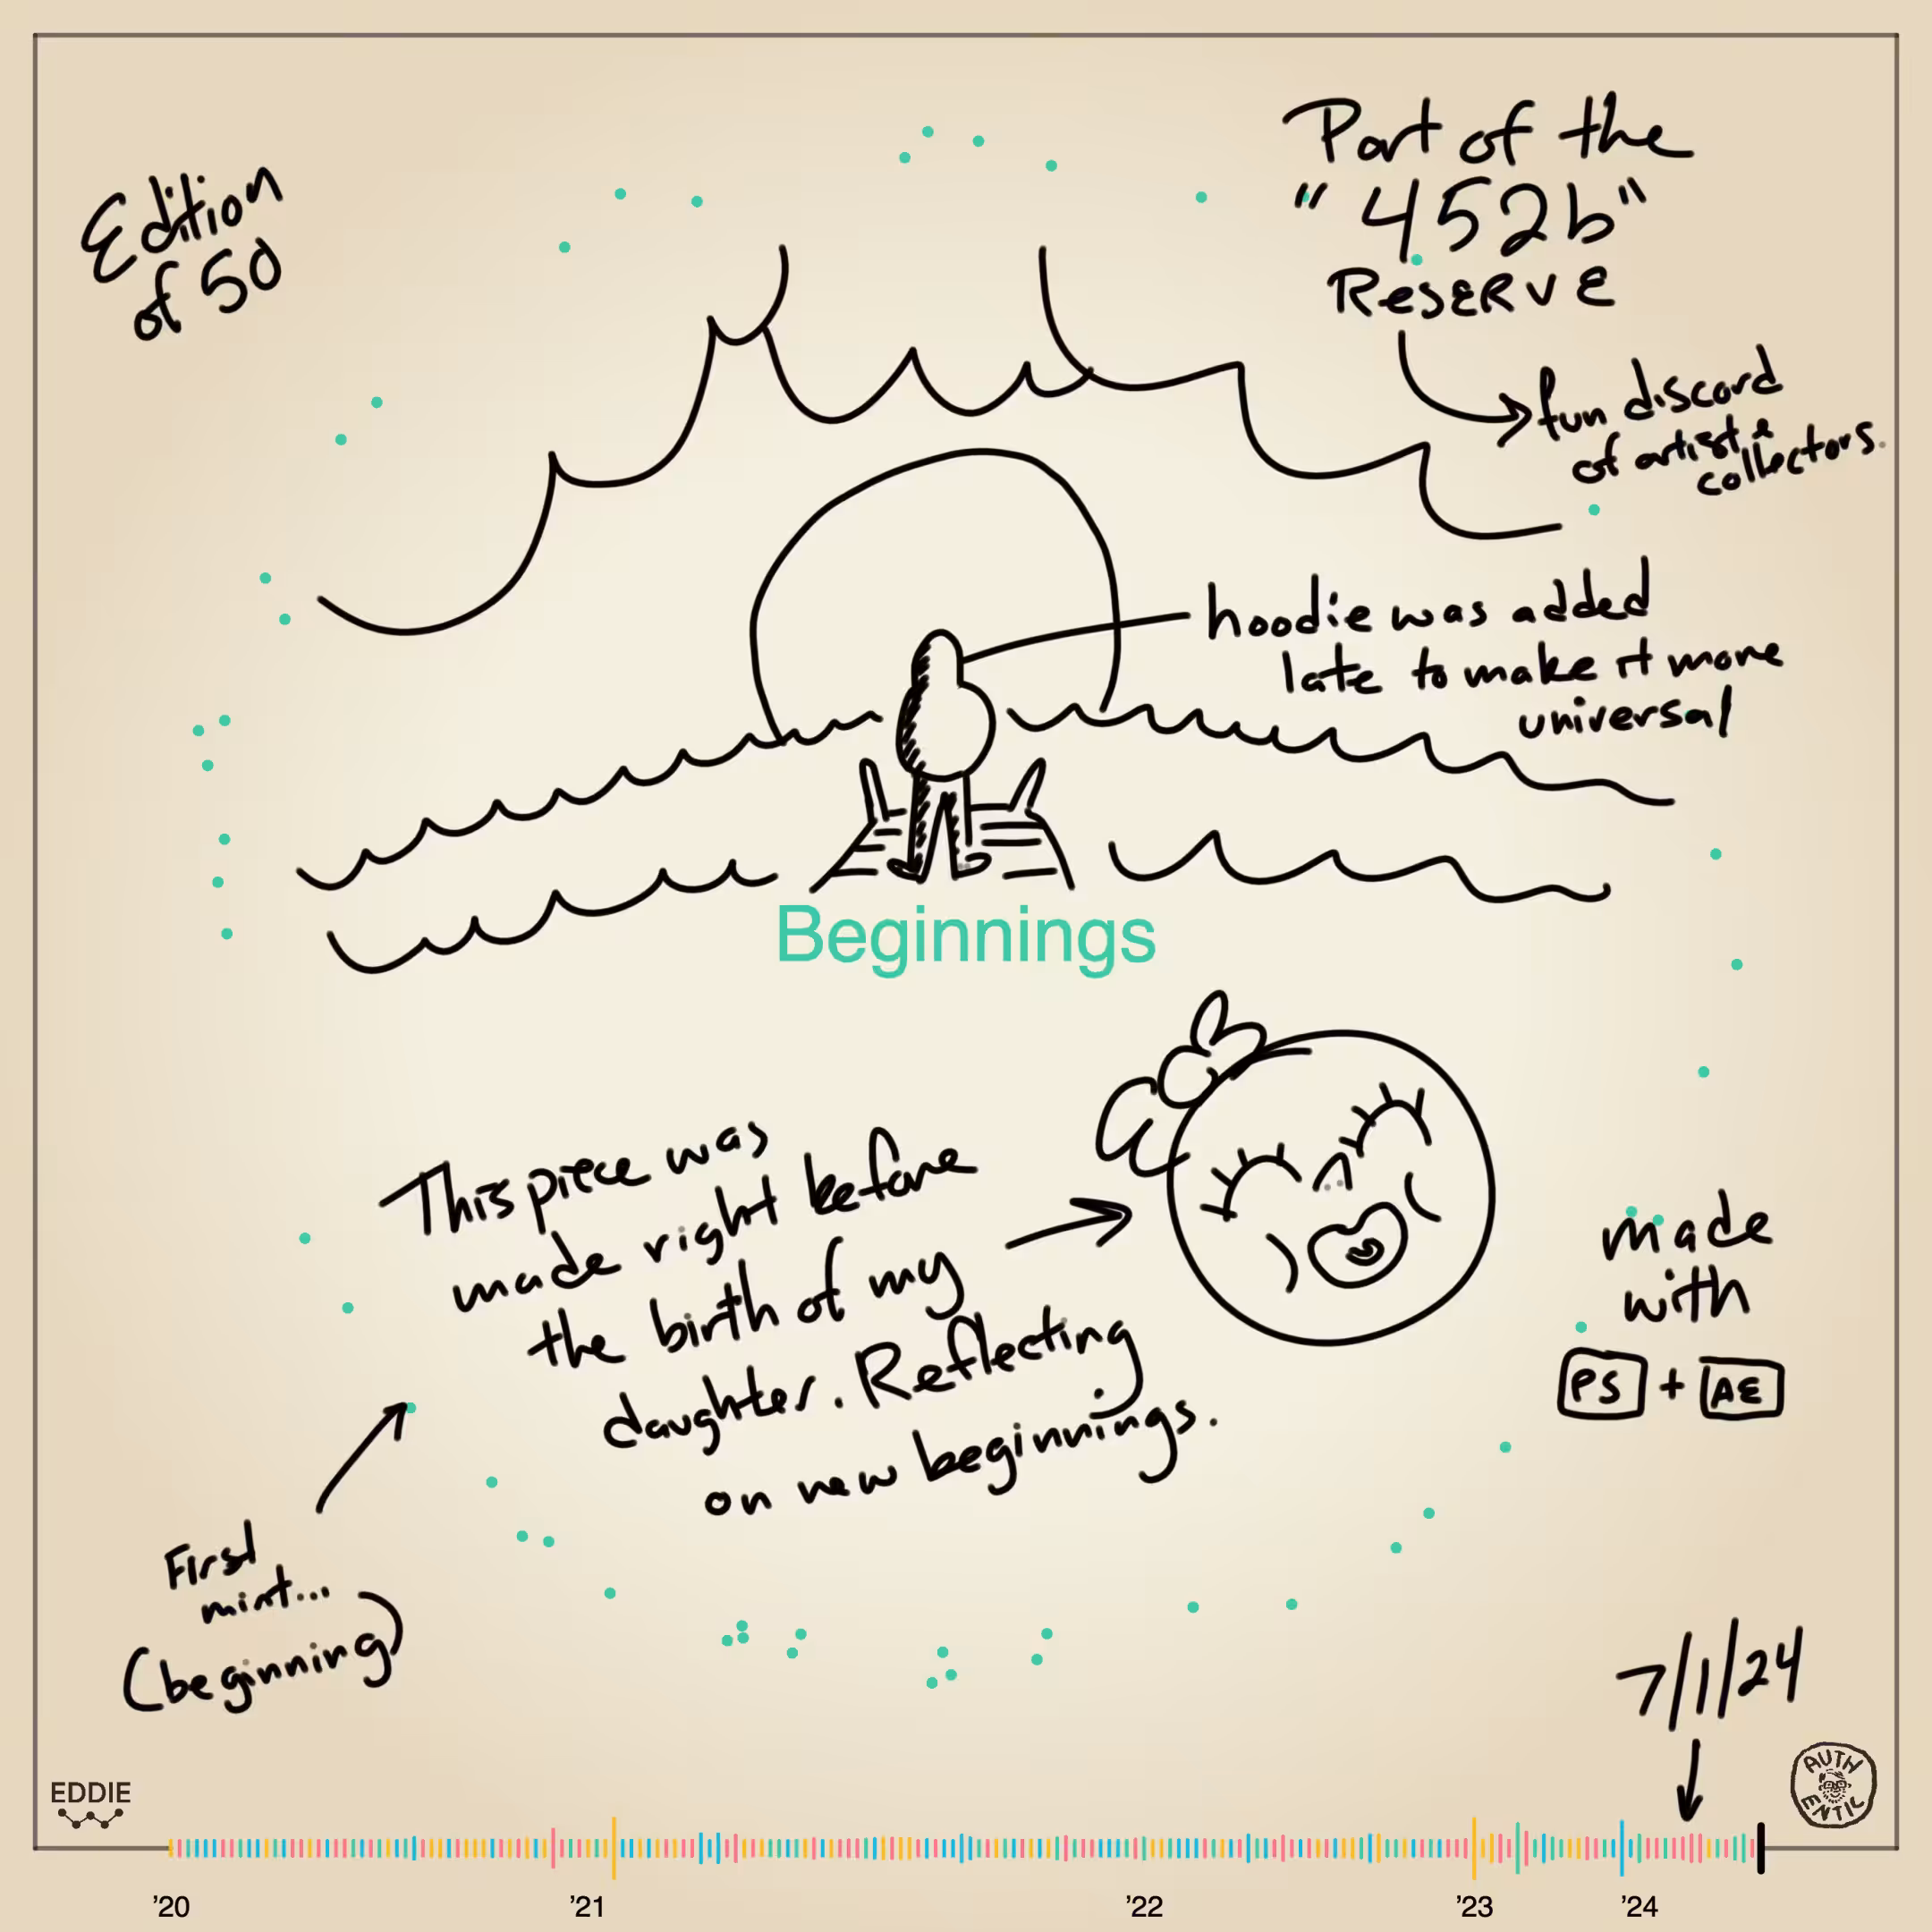 Edition
of 50
Part of the
"452b"
RESERVE
fun discord
of artist &
collectors.
hoodie was added
late to make it more
universal
Beginnings
This piece was
made right before
the birth of my
daughter. Reflecting
on new beginnings.
made
with
PS + AE
First
mint...
(beginning)
7/1/24
EDDIE
AUTH
ENTIC
'20 '21 '22 '23 '24